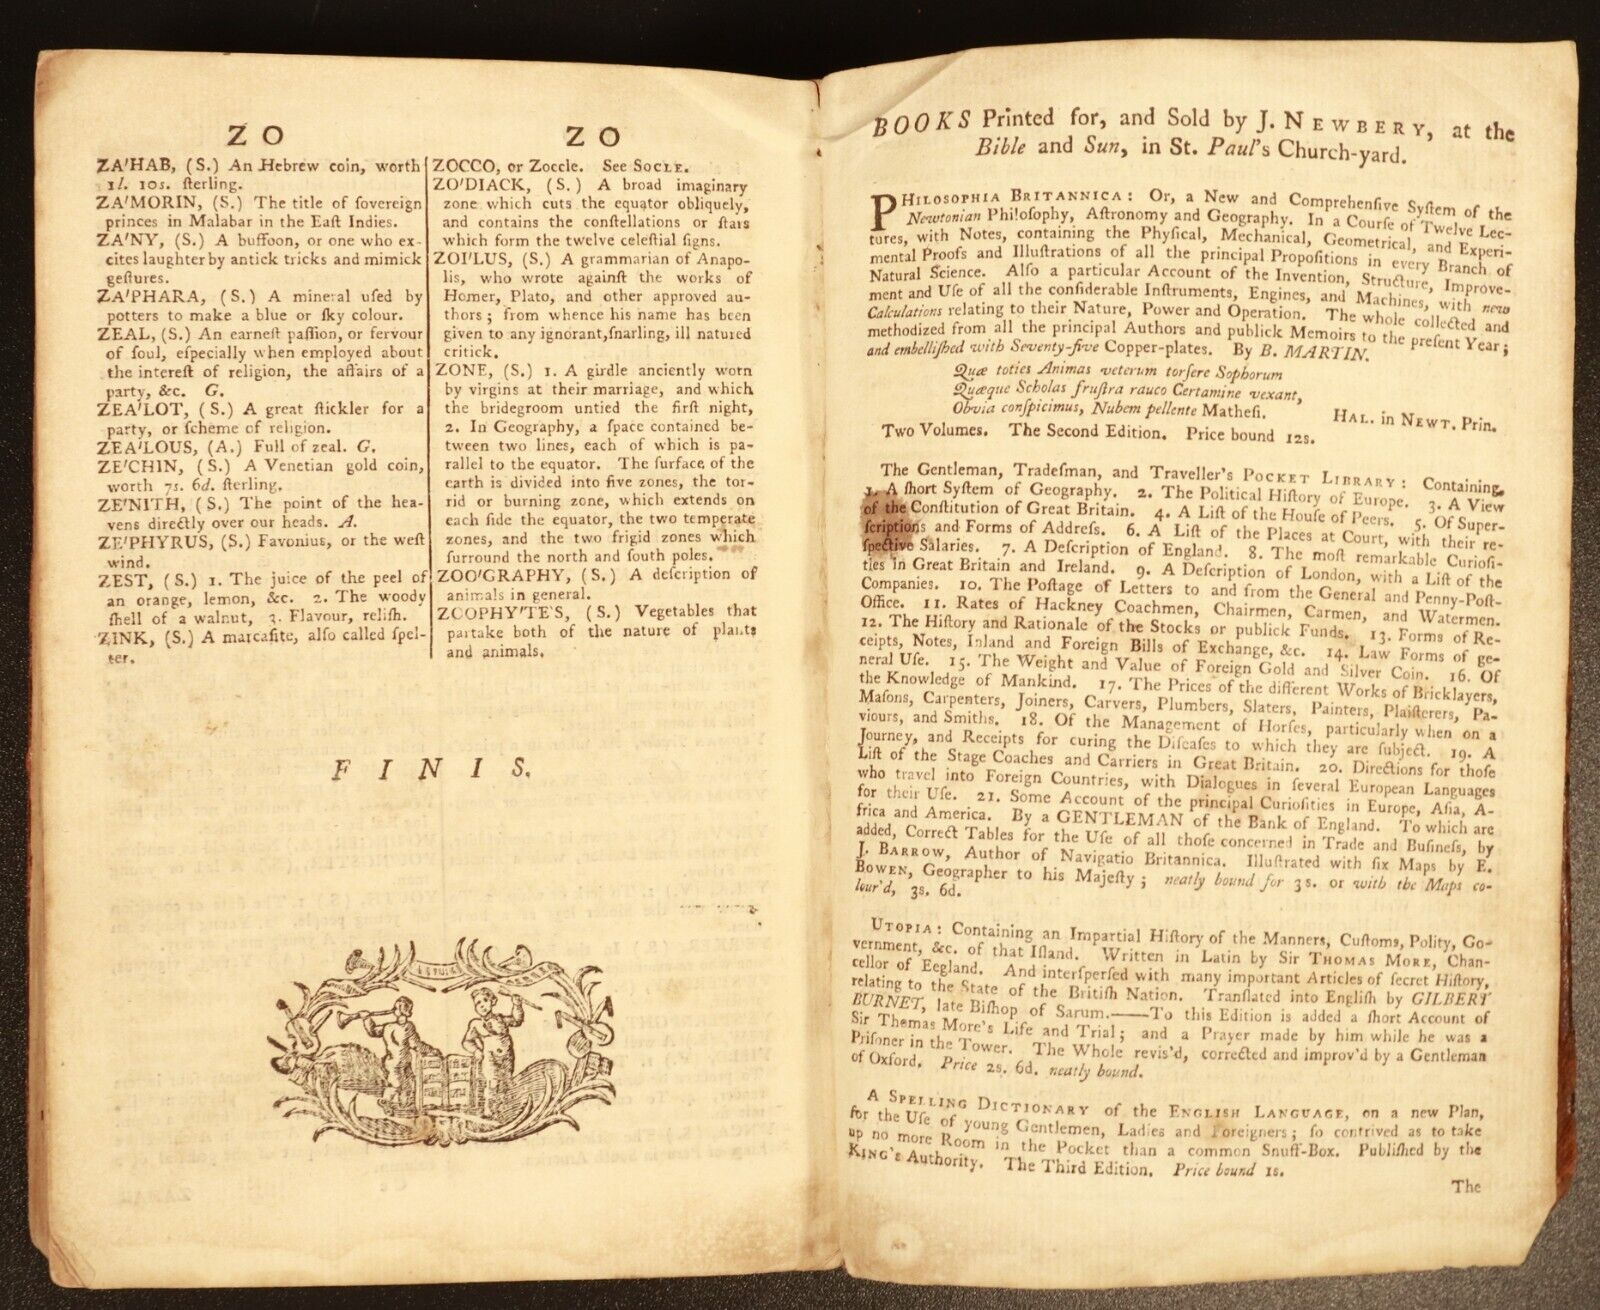 Z O
ZA'HAB, (S.) An Hebrew coin, worth
1l. 10s. ſterling.
ZA'MORIN, (S.) The title of ſovereign
princes in Malabar in the Eaſt Indies.
ZA'NY, (S.) A buffoon, or one who ex-
cites laughter by antick tricks and mimick
geſtures.
ZA'PHARA, (S.) A mineral uſed by
potters to make a blue or ſky colour.
ZEAL, (S.) An earneſt paſſion, or fervour
of ſoul, eſpecially when employed about
the intereſt of religion, the affairs of a
party, &c. G.
ZEA'LOT, (S.) A great ſtickler for a
party, or ſcheme of religion.
ZEA'LOUS, (A.) Full of zeal. G.
ZE'CHIN, (S.) A Venetian gold coin,
worth 7s. 6d. ſterling.
ZE'NITH, (S.) The point of the hea-
vens directly over our heads. A.
ZE'PHYRUS, (S.) Favonius, or the weſt
wind.
ZEST, (S.) 1. The juice of the peel of
an orange, lemon, &c. 2. The woody
ſhell of a walnut, 3. Flavour, reliſh.
ZINK, (S.) A marcaſite, alſo called ſpel-
ter.
Z O
ZOCCO, or Zoccle. See SOCLE.
ZO'DIACK, (S.) A broad imaginary
zone which cuts the equator obliquely,
and contains the conſtellations or ſtars
which form the twelve celeſtial ſigns.
ZOI'LUS, (S.) A grammarian of Anapo-
lis, who wrote againſt the works of
Homer, Plato, and other approved au-
thors; from whence his name has been
given to any ignorant, ſnarling, ill natured
critick.
ZONE, (S.) 1. A girdle anciently worn
by virgins at their marriage, and which
the bridegroom untied the firſt night,
2. In Geography, a ſpace contained be-
tween two lines, each of which is pa-
rallel to the equator. The ſurface of the
earth is divided into five zones, the tor-
rid or burning zone, which extends on
each ſide the equator, the two temperate
zones, and the two frigid zones which
ſurround the north and ſouth poles.
ZOO'GRAPHY, (S.) A deſcription of
animals in general.
ZOOPHY'TES, (S.) Vegetables that
partake both of the nature of plants
and animals.
F I N I S.
BOOKS Printed for, and Sold by J. NEWBERY, at the
Bible and Sun, in St. Paul's Church-yard.
PHILOSOPHIA BRITANNICA: Or, a New and Comprehenſive Syſtem of the
Newtonian Philoſophy, Aſtronomy and Geography. In a Courſe of Twelve Lec-
tures, with Notes, containing the Phyſical, Mechanical, Geometrical, and Experi-
mental Proofs and Illuſtrations of all the principal Propoſitions in every Branch of
Natural Science. Alſo a particular Account of the Invention, Structure, Improve-
ment and Uſe of all the conſiderable Inſtruments, Engines, and Machines, with new
Calculations relating to their Nature, Power and Operation. The whole collected and
methodized from all the principal Authors and publick Memoirs to the preſent Year;
and embelliſhed with Seventy-five Copper-plates. By B. MARTIN.
Quæ toties Animas veterum torſere Sophorum
Quæque Scholas fruſtra rauco Certamine vexant,
Obvia conſpicimus, Nubem pellente Matheſi.
HAL. in NEWT. Prin.
Two Volumes. The Second Edition. Price bound 12s.
The Gentleman, Tradeſman, and Traveller's POCKET LIBRARY: Containing,
1. A ſhort Syſtem of Geography. 2. The Political Hiſtory of Europe. 3. A View
of the Conſtitution of Great Britain. 4. A Liſt of the Houſe of Peers. 5. Of Super-
ſcriptions and Forms of Addreſs. 6. A Liſt of the Places at Court, with their re-
ſpective Salaries. 7. A Deſcription of England. 8. The moſt remarkable Curioſi-
ties in Great Britain and Ireland. 9. A Deſcription of London, with a Liſt of the
Companies. 10. The Poſtage of Letters to and from the General and Penny-Poſt-
Office. 11. Rates of Hackney Coachmen, Chairmen, Carmen, and Watermen.
12. The Hiſtory and Rationale of the Stocks or publick Funds. 13. Forms of Re-
ceipts, Notes, Inland and Foreign Bills of Exchange, &c. 14. Law Forms of ge-
neral Uſe. 15. The Weight and Value of Foreign Gold and Silver Coin. 16. Of
the Knowledge of Mankind. 17. The Prices of the different Works of Bricklayers,
Maſons, Carpenters, Joiners, Carvers, Plumbers, Slaters, Painters, Plaiſterers, Pa-
viours, and Smiths. 18. Of the Management of Horſes, particularly when on a
Journey, and Receipts for curing the Diſeaſes to which they are ſubject. 19. A
Liſt of the Stage Coaches and Carriers in Great Britain. 20. Directions for thoſe
who travel into Foreign Countries, with Dialogues in ſeveral European Languages
for their Uſe. 21. Some Account of the principal Curioſities in Europe, Aſia, A-
frica and America. By a GENTLEMAN of the Bank of England. To which are
added, Correct Tables for the Uſe of all thoſe concerned in Trade and Buſineſs, by
J. BARROW, Author of Navigatio Britannica. Illuſtrated with ſix Maps by E.
BOWEN, Geographer to his Majeſty; neatly bound for 3s. or with the Maps co-
lour'd, 3s. 6d.
UTOPIA: Containing an Impartial Hiſtory of the Manners, Cuſtoms, Polity, Go-
vernment, &c. of that Iſland. Written in Latin by Sir THOMAS MORE, Chan-
cellor of Eegland. And interſperſed with many important Articles of ſecret Hiſtory,
relating to the State of the Britiſh Nation. Tranſlated into Engliſh by GILBERT
BURNET, late Biſhop of Sarum.——To this Edition is added a ſhort Account of
Sir Thomas More's Life and Trial; and a Prayer made by him while he was a
Priſoner in the Tower. The Whole revis'd, corrected and improv'd by a Gentleman
of Oxford. Price 2s. 6d. neatly bound.
A SPELLING DICTIONARY of the ENGLISH LANGUAGE, on a new Plan,
for the Uſe of young Gentlemen, Ladies and Foreigners; ſo contrived as to take
up no more Room in the Pocket than a common Snuff-Box. Publiſhed by the
KING's Authority. The Third Edition. Price bound 1s.
The